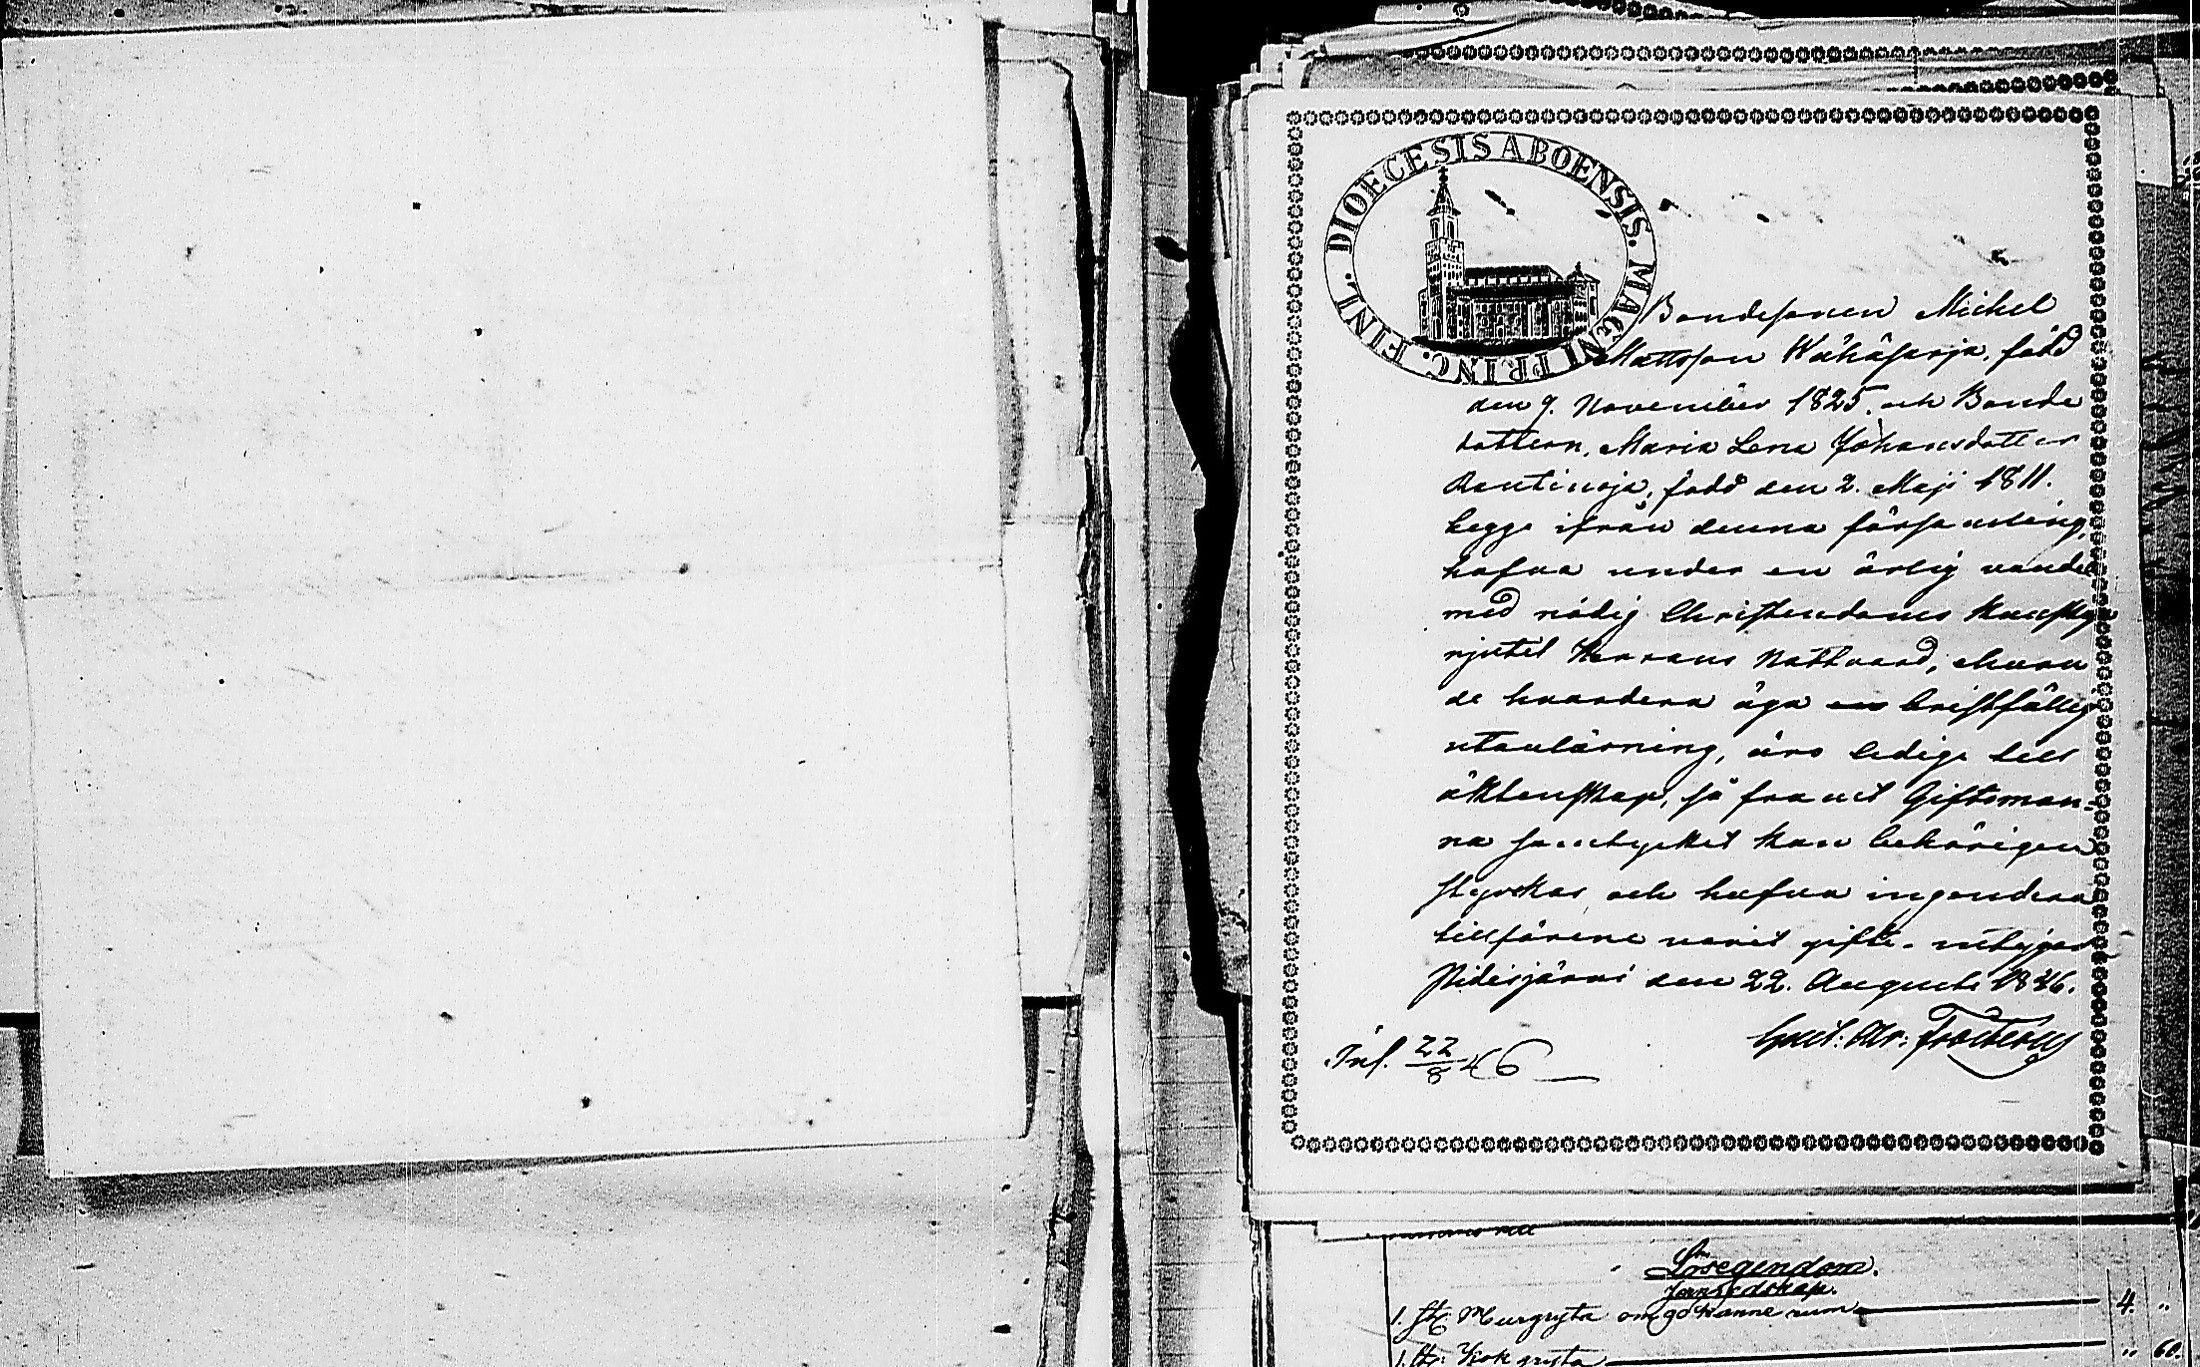 DIOECESIS ABOENSIS. MAGNI PRINC. FINL.
Bondesonen Michel
Mattsson Wähäsarja, född
den 9. November 1825. och Bonde
dottern, Maria Lena Johansdotter
Rautinoja, född den 2. Maji 1811.
begge ifrån denna församling,
hafva under en ärlig vandel
med nödig Christendoms kunskap
njutit Herrans Nattvard, ehuru
de hvardera äga en bristfällig
utanläsning, äro ledige till
äktenskap, så framt Giftoman-
na samtycket kan behörigen
styrkas och hafva ingendera
tillförene varit gifte. intygar
Pidisjärvi den 22. Augusti 1846.
Inl. 22/8 46
Lösegendom.
Jernredskap.
1. st. Murgryta om 90 kannerum 4. "
1. st. Kok gryta " 60.